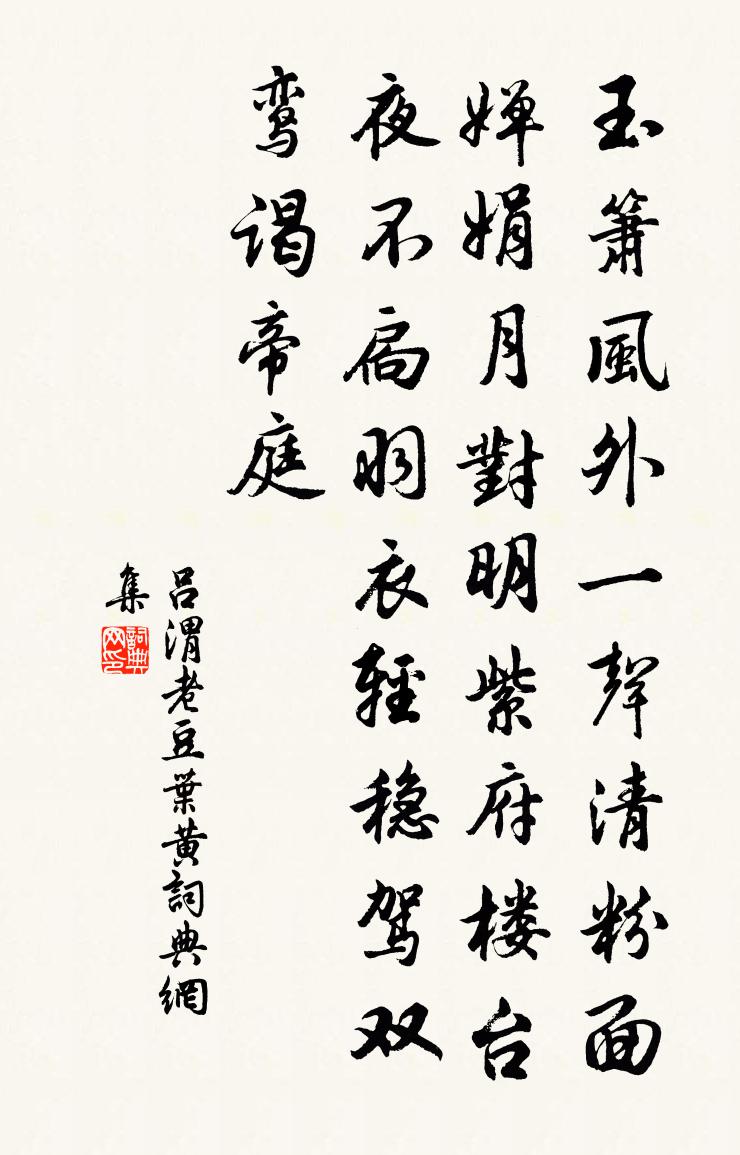 玉簫風外一聲清粉面
嬋娟月對明紫府楼台
夜不扃羽衣輕穩駕双
鸾谒帝庭
吕渭老豆葉黄詞典網
集
詞典
网印